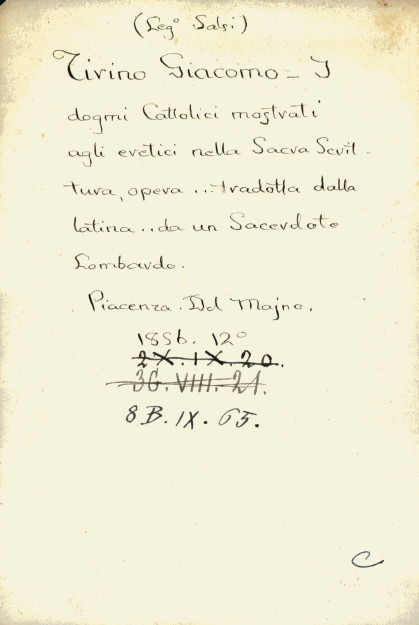 (Leg° Salsi)
Tirino Giacomo - I
dogmi Cattolici mostrati
agli eretici nella Sacra Scrit-
tura, opera ... tradotta dalla
latina .. da un Sacerdote
Lombardo.
Piacenza. Del Majno.
1856. 12°
2X.IX.20.
3G.VIII.21.
8B.IX.65.
C